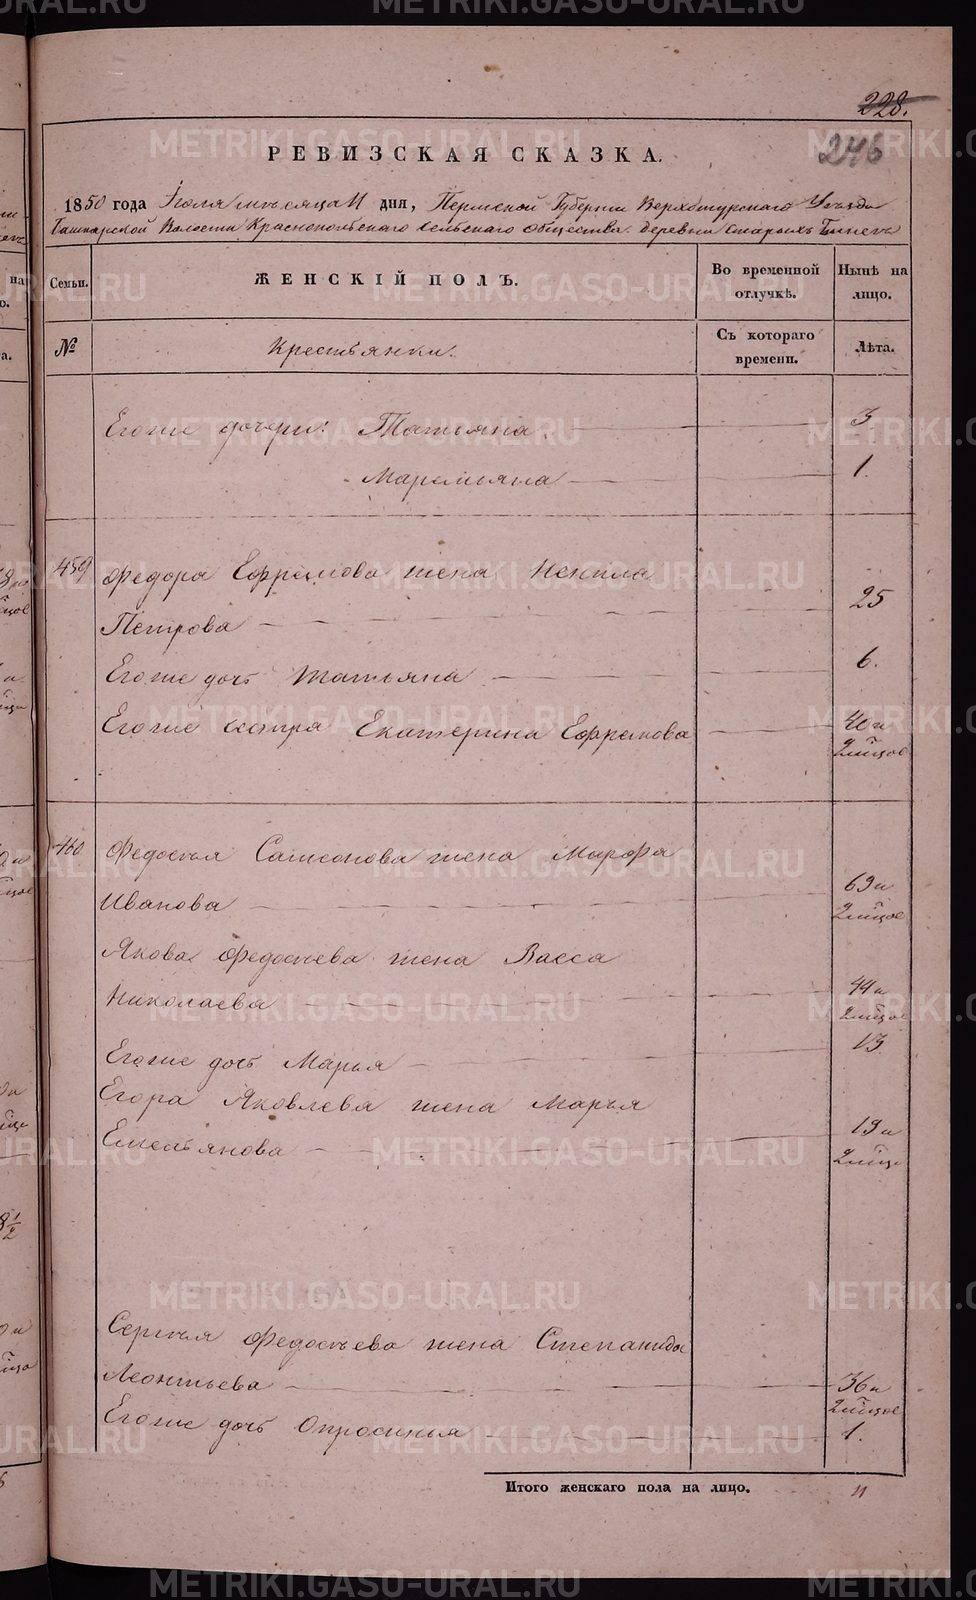 228.
246
РЕВИЗСКАЯ СКАЗКА.
1850 года Іюля мѣсяца 11 дня, Пермской Губерніи Верхотурскаго Уѣзда
Башкарской Волости Краснопольскаго сельскаго общества деревни Старыхъ
Семьи. ЖЕНСКІЙ ПОЛЪ. Во временной отлучкѣ. Нынѣ на лицо.
№ Крестьянки. Съ котораго времени. Лѣта.
Егоже дочери: Татьяна 3
Маремьяна 1.
459 Федора Ефремова жена Ненила
Петрова 25
Егоже дочь Татьяна 6.
Егоже сестра Екатерина Ефремова 40 и
2 мѣсяцов
460 Федосѣя Самсонова жена Марфа
Иванова 69 и
2 мѣсяцов
Якова Федосѣева жена Васса
Николаева 44 и
2 мѣсяцов
Егоже дочь Марья 13
Егора Яковлева жена Марья
Емельянова 19 и
Сергѣя Федосѣева жена Степанида
Леонтьева 36 и
2 мѣсяцов
Егоже дочь Опросинья 1.
Итого женскаго пола на лицо. 11
METRIKI.GASO-URAL.RU